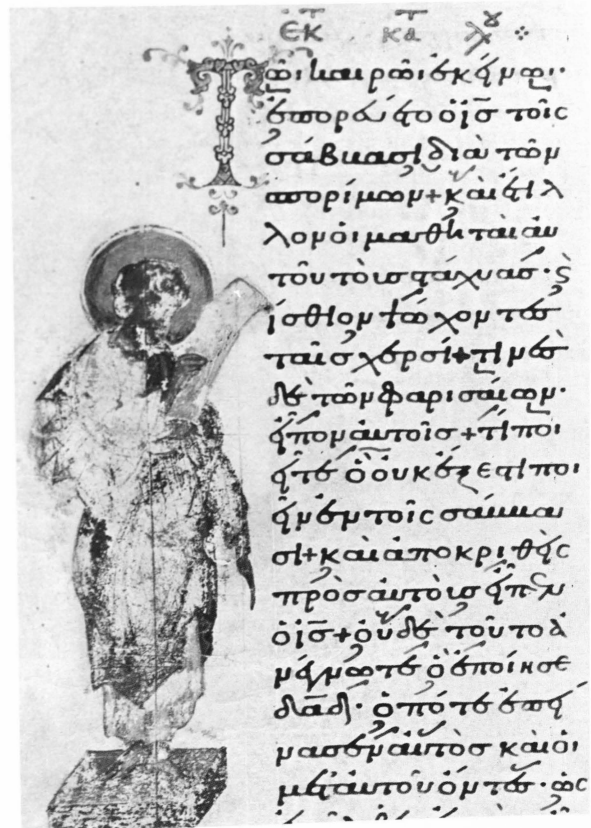 ἐκ τ κατ λου ⁘
Τῶι καιρῶι ἐκείνωι·
ἐπορεύετο ὁ ις̅ τοῖς
σάββασι διὰ τῶν
σπορίμων + καὶ ἔτιλ
λον ὁι μαθηταὶ ἀυ
τοῦ τοὺς στάχυας· καὶ
ἤσθιον ψώχοντες
ταῖς χερσί + τινὲς
δὲ τῶν φαρισαίων·
εἶπον ἀυτοῖς + τί ποι
εῖτε ὃ οὐκ ἔξεστι ποι
εῖν ἐν τοῖς σάββα
σι + καὶ ἀποκριθεὶς
πρὸς ἀυτοὺς εἶπεν
ὁ ις̅ + οὐδὲ τοῦτο ἀ
νέγνωτε ὃ ἐποίησε
δα̅δ̅· ὁπότε ἐπεί
νασεν ἀυτὸς καὶ ὁι
μετ ἀυτοῦ ὄντες· ὡς